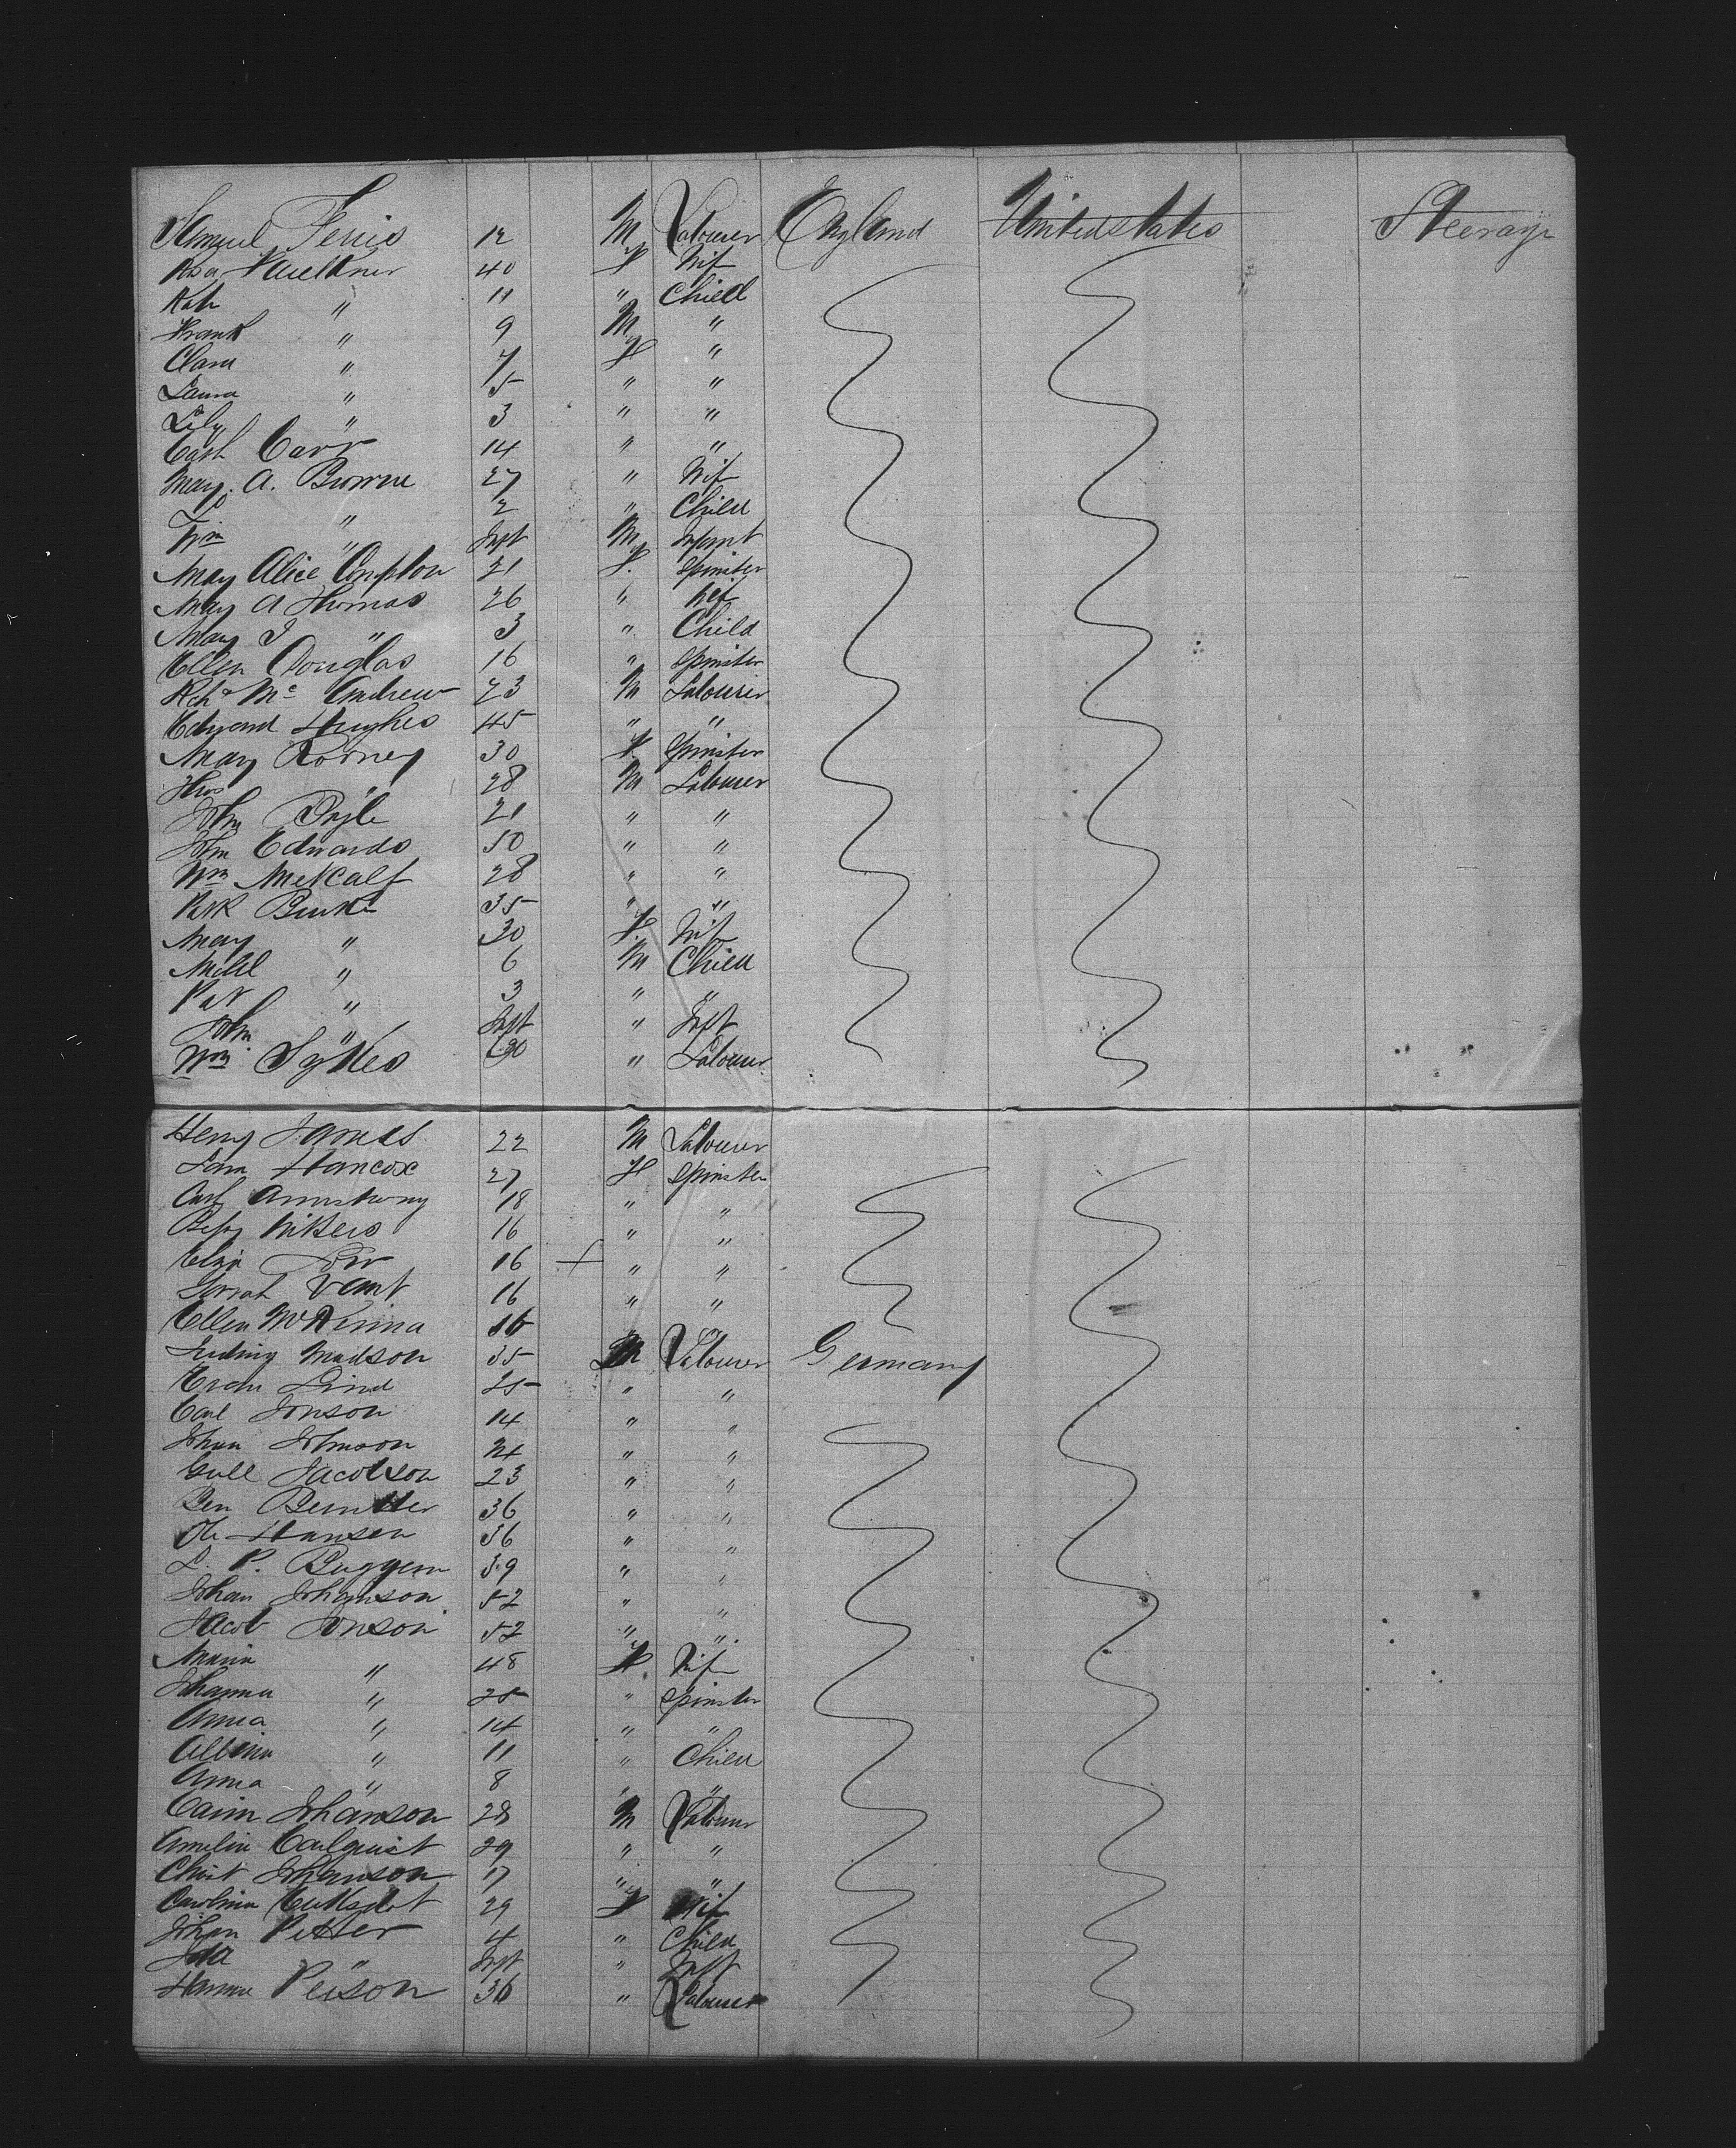 Samuel Ferris 12 M Labourer England United States Steerage
Rosa Faulkner 40 F Wif
Kate " 11 " Child
Frank " 9 M "
Clara " 7 F "
Laura " 5 " "
Lily " 3 " "
Cath Carr 14 " "
Mary A. Browne 27 " Wif
" 2 " Child
Wm " Inft M Infant
Mary Alice Compton 21 F. Spinster
Mary A Thomas 26 " Wif
Mary J " 3 " Child
Ellen Douglas 16 " Spinster
Rchd Mc Andrew 23 M Labourer
Edward Hughes 45 " "
Mary Rooney 30 F. Spinster
Thos 28 M Labourer
John Pyle 21 " "
John Edwards 50 " "
Wm Metcalf 28 " "
Patk Burke 35 " "
Mary " 30 F. Wif
Michl " 6 M Child
Pat " 3 " "
John " Inft " Inft
Wm Sykes " Labourer
Henry James 22 M Labourer
Sam Hancox 27 F Spinster
Cath Armstrong 18 " "
Betsy 16 " "
Eliza 16 + " "
Sarah Vant 16 " "
Ellen McKenna 16
Ludwig Madson 35 M Labourer Germany
Evan Lind 25 " "
Carl Jonson 14 " "
Johan Johnson 24 " "
Gull Jacobson 23 " "
Ben 36 " "
Ole Hansen 36 " "
L. P. 39 " "
Johan Johanson 52 " "
Jacob Jonson 52 " "
Maria " 48 F Wif
Johanna " 25 " Spinster
Anna " 14 " "
Albina " 11 " Child
Anna " 8 " "
Johanson 28 M Labourer
Amelia Carlquist 29 " "
Christ Johanson 17 " "
Carolina 29 F Wif
Johan Petter 4 " Child
Ida " Inft " Inft
Hanna Peison 36 " Labourer